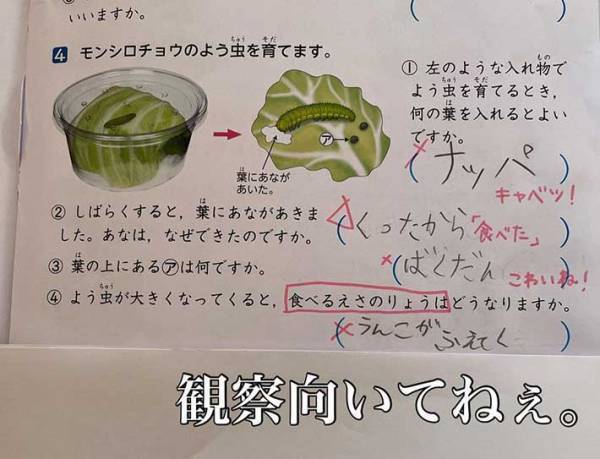 いいますか。
4 モンシロチョウのよう虫を育てます。
ちゅう そだ
葉にあなが
あいた。
は
㋐
① 左のような入れ物で
もの
よう虫を育てるとき、
ちゅう そだ
何の葉を入れるとよい
は
ですか。
(ナッパ)
キャベツ!
② しばらくすると、葉にあながあきま
は
した。あなは、なぜできたのですか。
(くったから「食べた」)
③ 葉の上にある㋐は何ですか。
は
(ばくだん)
こわいね!
④ よう虫が大きくなってくると、食べるえさのりょうはどうなりますか。
ちゅう
(うんこがふえてく)
観察向いてねぇ。